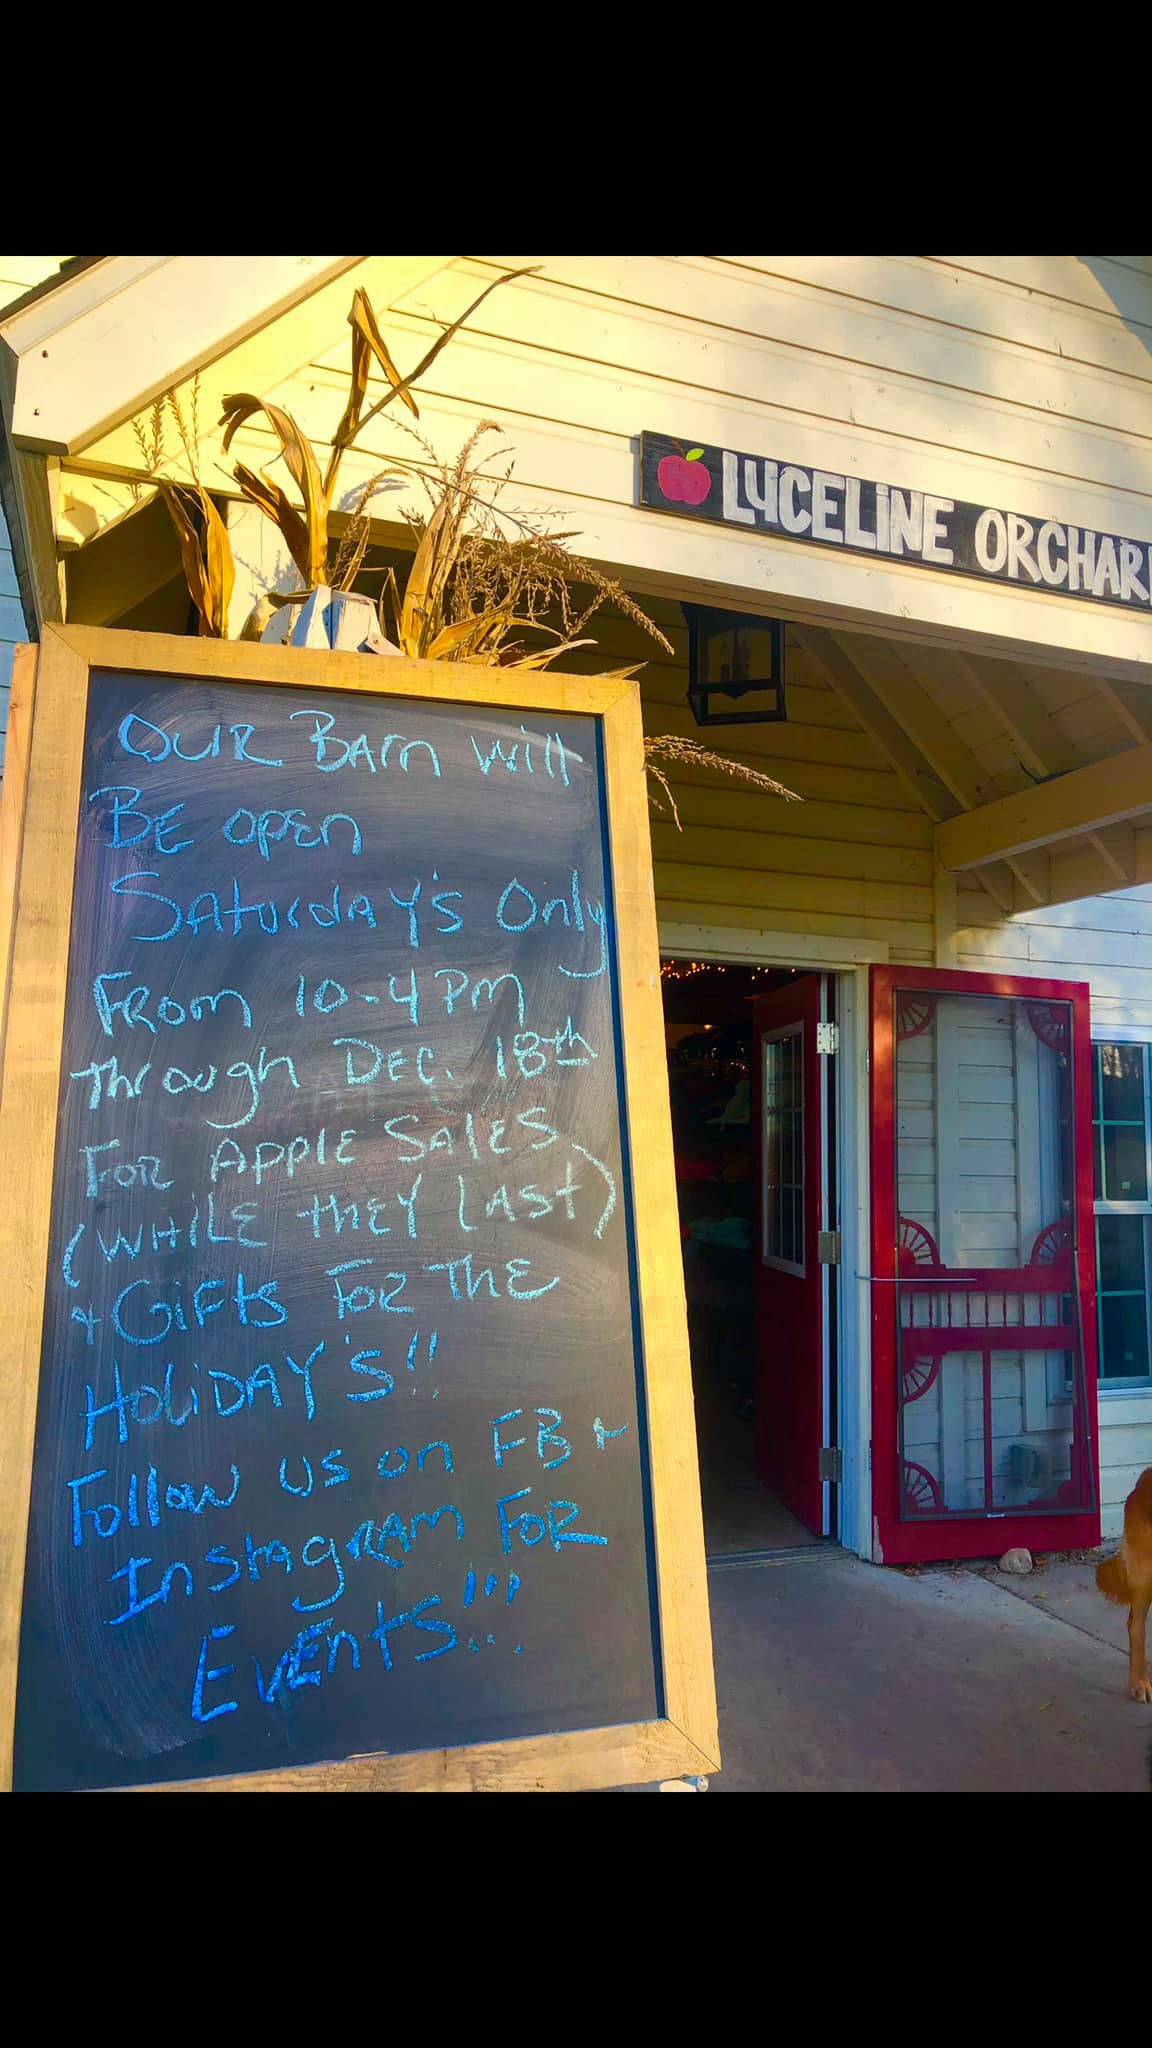 LUCELINE ORCHAR
Our Barn will
Be open
Saturday's Only
From 10-4 pm
Through Dec. 18th
For Apple Sales
(While they last)
+ Gifts for the
Holiday's!!
Follow us on FB +
Instagram For
Events!!!